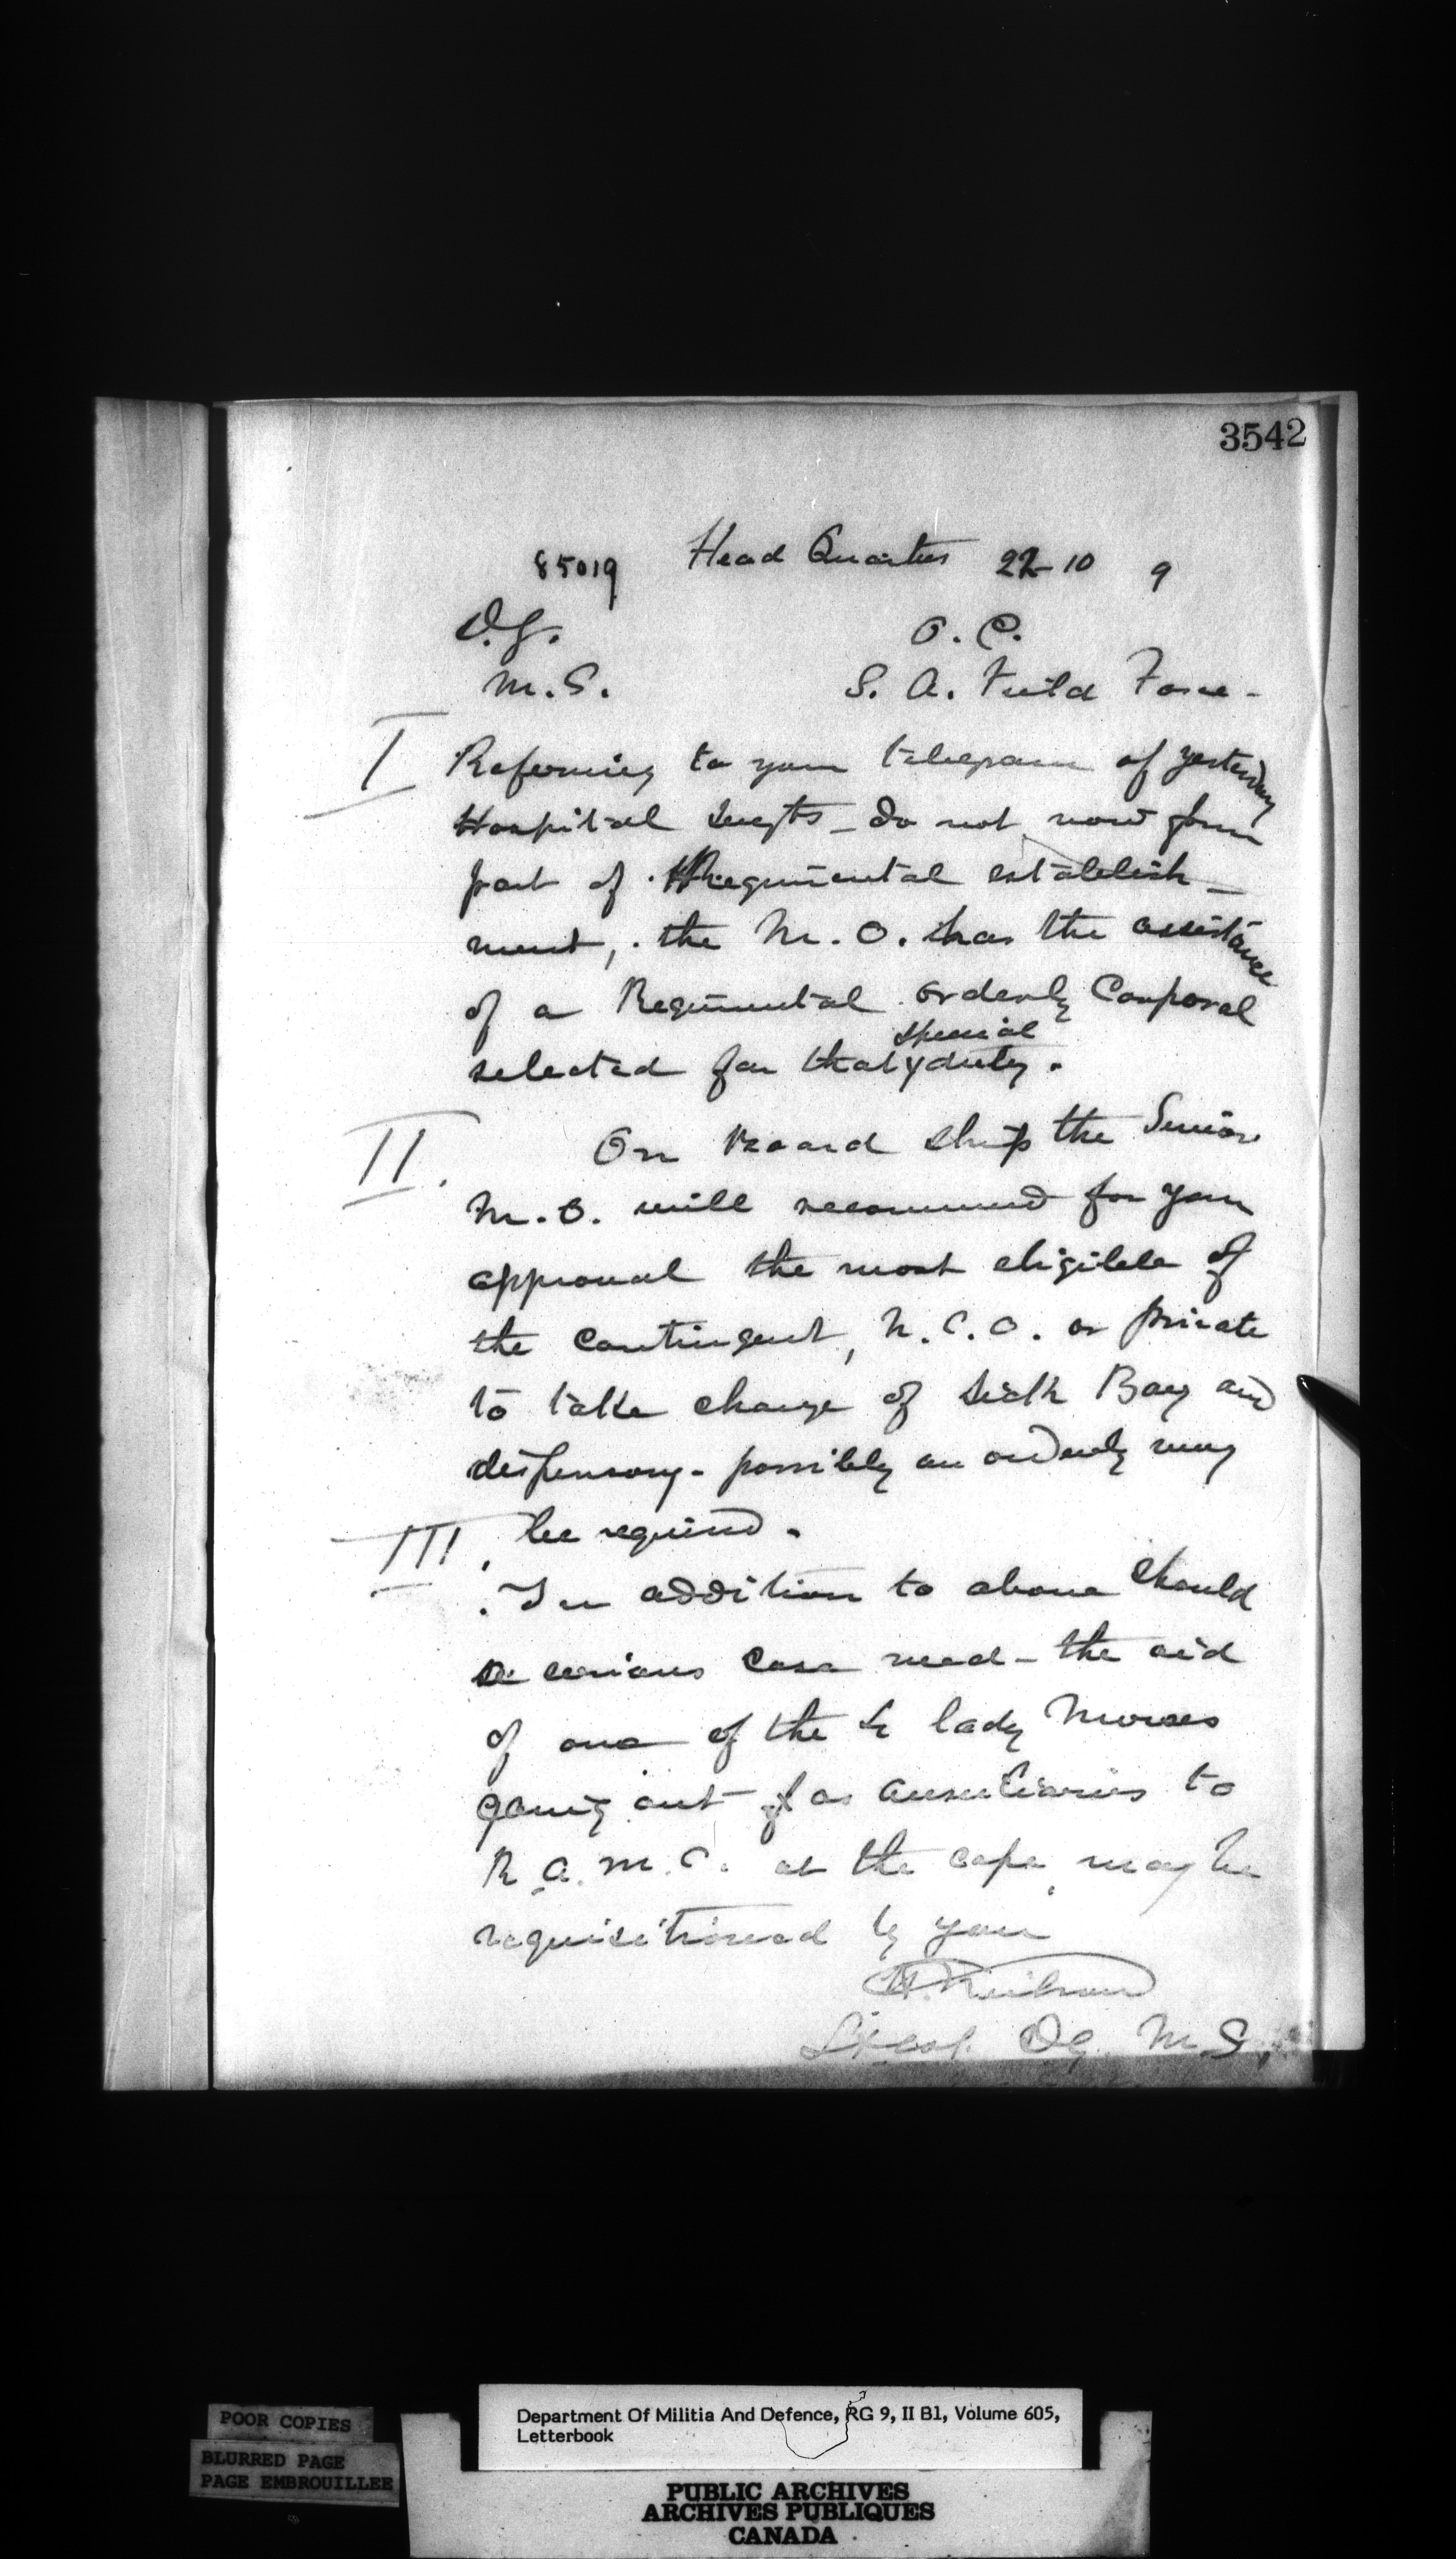 3542
85019 Head Quarters 22-10 9
D.G. O. C.
M.S. S. A. Field Force -
I Referring to your telegram of yesterday
Hospital Sergts - do not now form
part of Regimental establish-
ment, the M. O. has the assistance
of a Regimental orderly Corporal
selected for that special duty.
II. On board ship the Senior
M.O. will recommend for your
approval the most eligible of
the Contingent, N.C.O. or private
to take charge of Sick Bay and
dispensary - possibly an orderly may
be required.
III. In addition to above should
a serious case need - the aid
of one of the 4 lady Nurses
going out as auxiliaries to
R.A.M.C. at the cape, may be
requisitioned by you
Neilson
Lt Col. DG. M.S.
POOR COPIES
BLURRED PAGE
PAGE EMBROUILLEE
Department Of Militia And Defence, RG 9, II B1, Volume 605,
Letterbook
PUBLIC ARCHIVES
ARCHIVES PUBLIQUES
CANADA